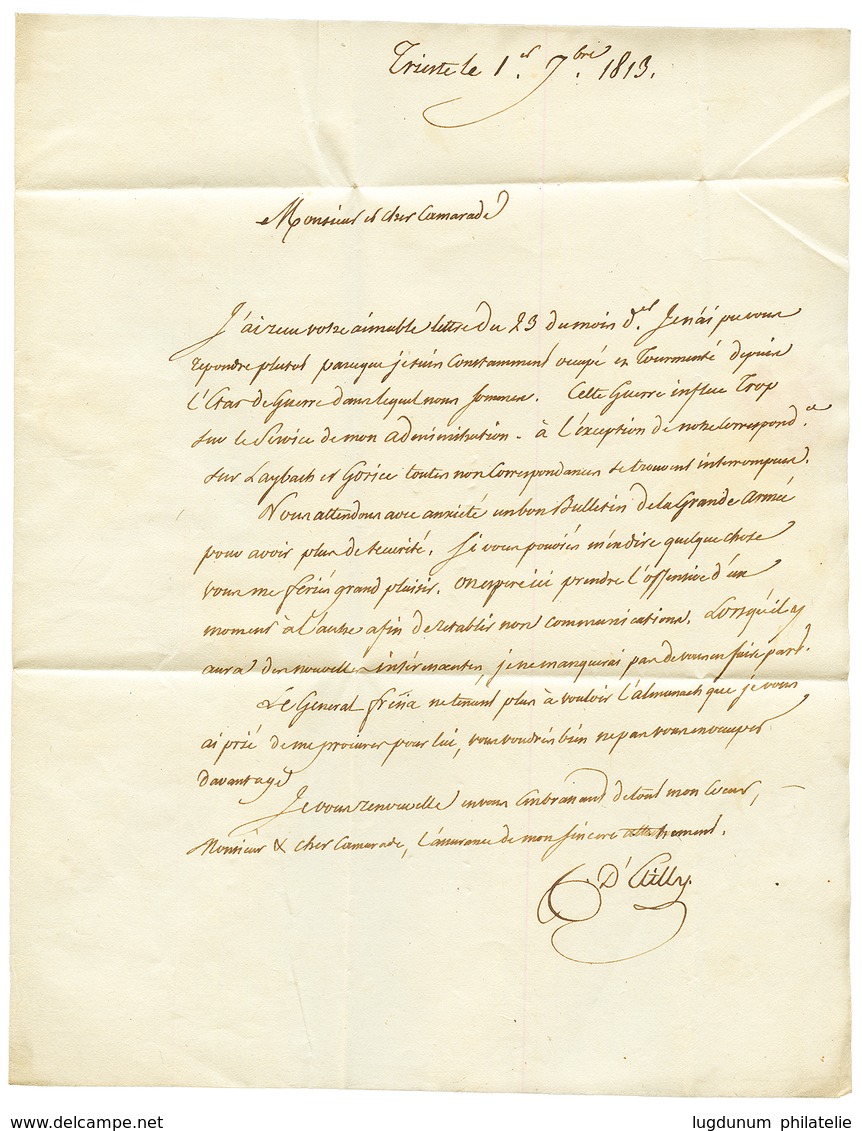 Trieste le 1.er 7.bre 1813.
Monsieur et cher Camarade
J'ai reçu votre aimable lettre du 23 du mois d.er Je n'ai pu vous
repondre plutot parceque je suis Constamment occupé et Tourmenté depuis
l'Etat de Guerre dans lequel nous sommes. Cette Guerre influe Trop
sur le Service de mon administration. à l'éxception de notre Correspond.ce
sur Laybach et Gorice toutes nos Correspondances se trouvent interrompues.
Nous attendons avec anxieté un bon Bulletin de la Grande Armée
pour avoir plus de securité. Si vous pouviés m'en dire quelque chose
vous me feriés grand plaisir. on espere ici prendre l'offensive d'un
moment à l'autre afin de retablir nos communications. Lorsqu'il y
aura des nouvelles intéressantes, je ne manquerai pas de vous en faire part.
Le General frésia ne tenant plus à vouloir l'almanach que je vous
ai prié de me procurer pour lui, vous voudrés bien ne pas vous en occuper
davantage
Je vous renouvelle en vous Embrassant de tout mon Coeur,
Monsieur & cher Camarade, l'assurance de mon sincere attachement.
D'
delcampe.net
lugdunum philatelie